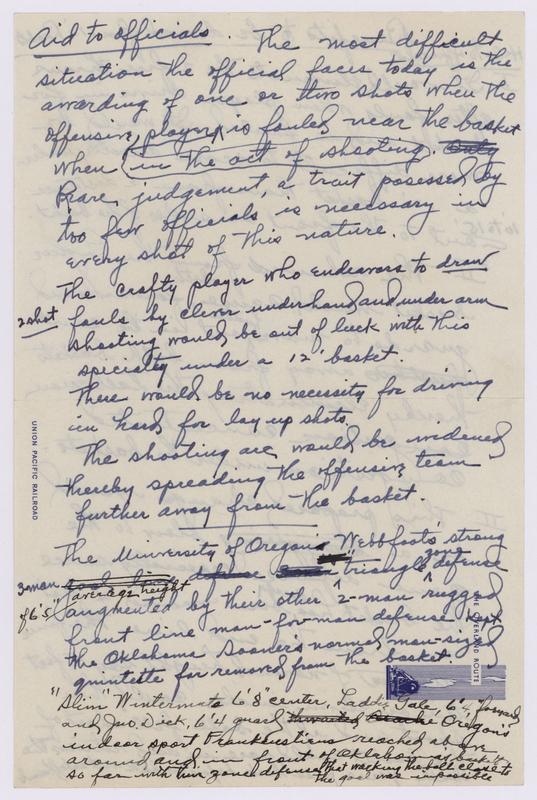 Aid to officials. The most difficult
situation the official faces today is the
awarding of one or two shots when the
offensive player is fouled near the basket
when in the act of shooting. Only
Rare judgement, a trait posessed by
too few officials is necessary in
every shot of this nature.
The crafty player who endeavors to draw
2 shot fouls by clever underhand and under arm
shooting would be out of luck with this
specialty under a 12' basket.
There would be no necessity for driving
in hard for lay up shots.
The shooting area would be widened
thereby spreading the offensive team
further away from the basket.
UNION PACIFIC RAILROAD
The University of Oregon's Webbfoot's strong
3 man defense "triangle zone defense
average height of 6'5"
augmented by their other 2-man rugged
front line man-for-man defense kept
the Oklahoma Sooner's normal man-sized
quintette far removed from the basket.
THE OVERLAND ROUTE
"Slim" Wintermute 6'8" center, Laddie Gale, 6'4 forward
and Jno. Dick, 6'4 guard thwarted Oregon's
indoor sport Frankensteins reached above
around and in front of Oklahoma's basket
so far with their zone defense that working the ball close to
the goal was impossible